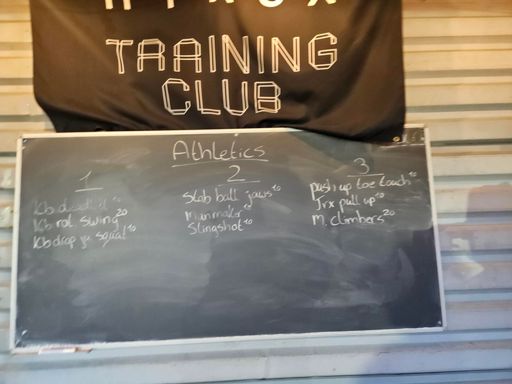 TRAINING
CLUB
Athletics
1
Kb deadlift 10
Kb rot. swing 20
Kb drop ju squat 10
2
Slab ball jaws 10
Manmaker 10
Slingshot 10
3
push up toe touch 10
Trx pull up 10
M. climbers 20